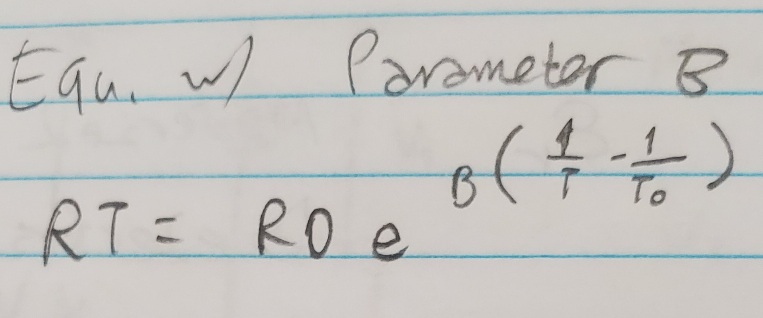 Equ. w/ Parameter B
RT = R0 e^B(1/T - 1/T0)